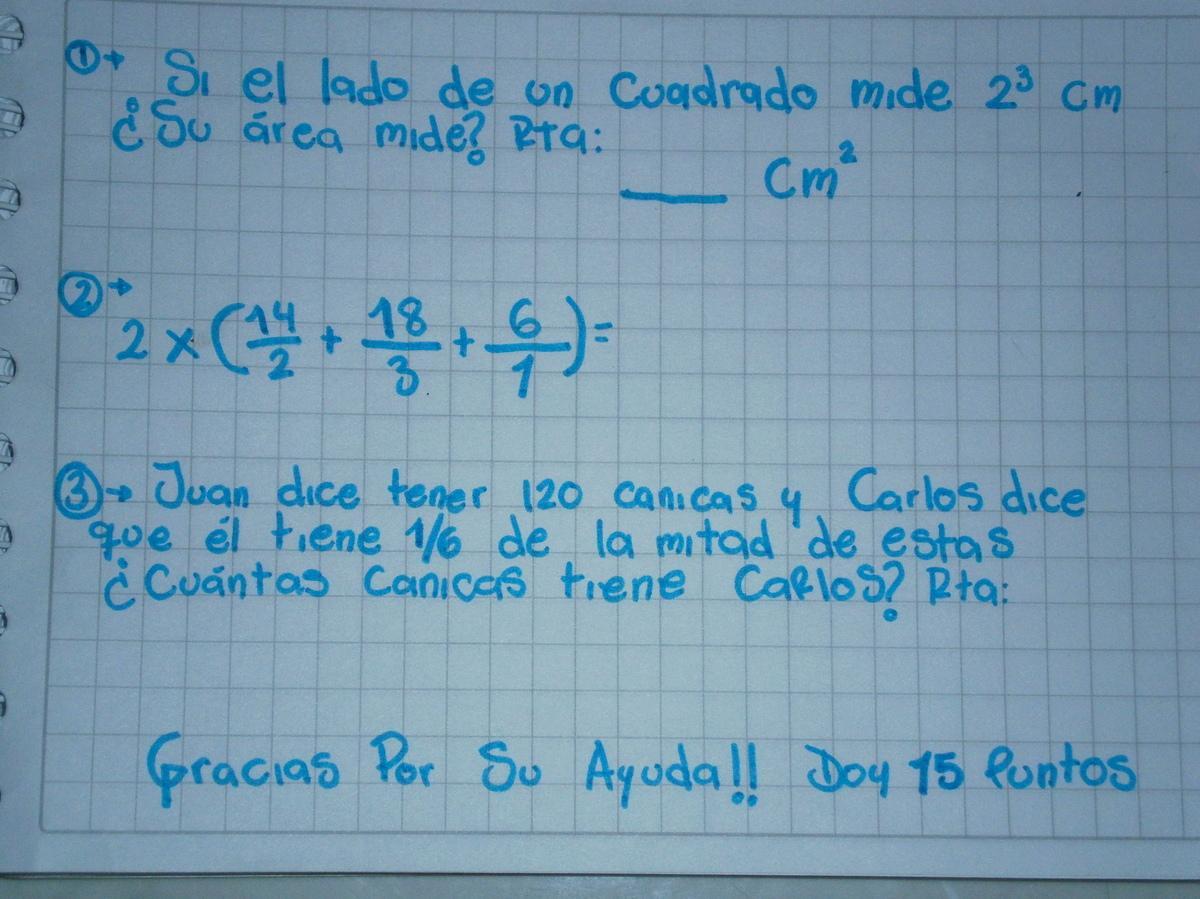 ①→ Si el lado de un Cuadrado mide 2³ cm
¿Su área mide? Rta:
____ Cm²
②→
2 × (14/2 + 18/3 + 6/1) =
③→ Juan dice tener 120 canicas y Carlos dice
que él tiene 1/6 de la mitad de estas
¿Cuántas Canicas tiene Carlos? Rta:
Gracias Por Su Ayuda!! Doy 15 Puntos